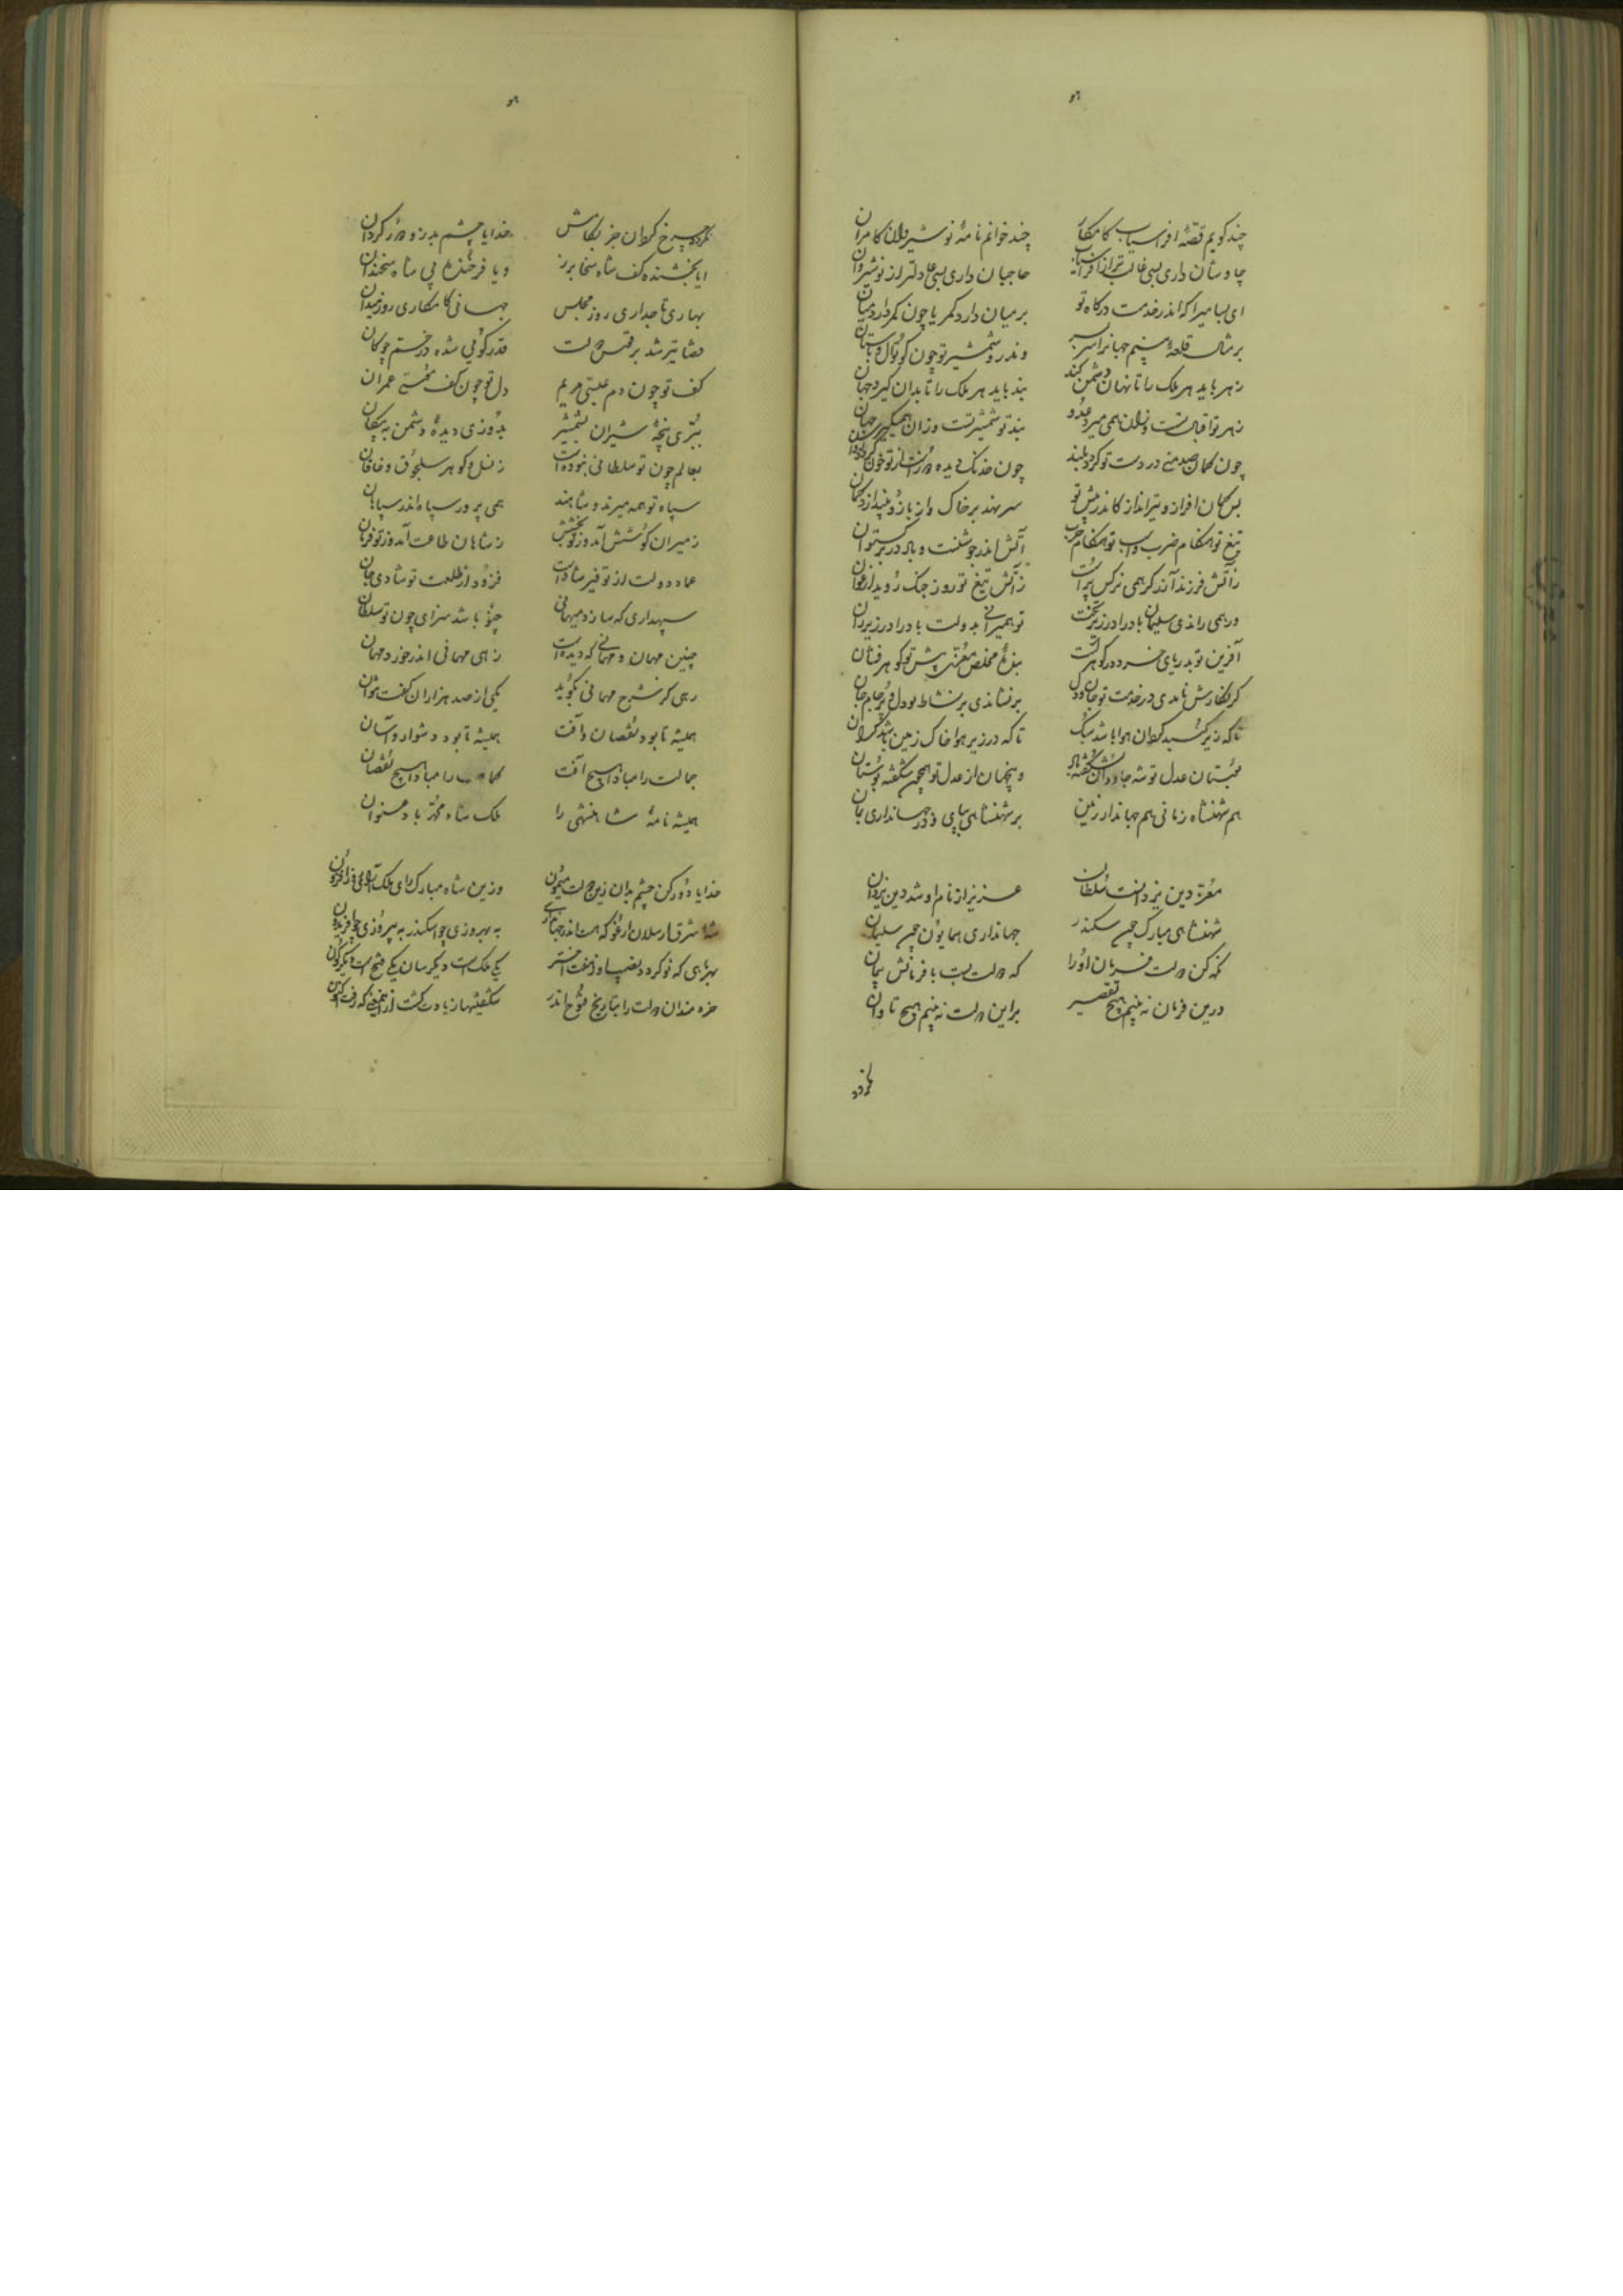 چند کویم قصّهٔ افراسیاب کامکار
چند خوانم نامهٔ نوشیروان کامران
چاوشان داری بسی غالب‌تر از افراسیاب
حاجبان داری بسی عادلتر از نوشیروان
ای بسا میرا که اندر خدمت درکاه تو
بر میان دارد کمر یا چون کمر دارد میان
بر مثال قلعهٔ بینم جهانرا سربسر
وندرو شمشیر تو چون کوتوال و پاسبان
زهر باید هر ملک را تا نهان دشمن کند
بند باید هر ملک را تا بدان کیرد جهان
زهر تو اقبال تست وزان همی میرد عدو
بند تو شمشیر تست وزان همیکیری جهان
چون کمان صد منی در دست تو کردد بلند
چون خدنک دیده دوزت از تو
بس کمان افراز و تیرانداز کاندر پیش تو
سر نهد بر خاک و از بازو بیندازد کمان
تیغ تو هنکام ضرب و اسب تو هنکام حرب
آتش اندر جوشنست و باد در برکستوان
ز آتش فرزند آذر کر همی نرکس برست
ز آتش تیغ تو روز جنک روید ارغوان
ور همی راندی سلیمان باد را در زیر تخت
تو همیرانی بدولت باد را در زیر ران
آفرین تو بدریای خرد در کوهرست
بندهٔ مخلص معزّی پیش تو کوهرفشان
کر بکارش نامدی در خدمت تو جان و دل
برفشاندی بر نشاط بود دل بر جام جان
تا که زیر کنبد کردان هوا باشد سبک
تا که در زیر هوا خاک زمین باشد کران
مجلستان عدل تو شه جاودان شکفته باد
وین جهان از عدل تو همچون شکفته بوستان
هم شهنشاه زمانی هم جهاندار زمین
بر شهنشاهی بپای و در جهانداری بمان
معزّ دین یزدانست سلطان
عزیز از نام او شد دین یزدان
شهنشاهی مبارک چون سکندر
جهانداری همایون چون سلیمان
نکه کن دولت و فرمان او را
که دولت بست با فرمانش پیمان
درین فرمان نه بینم هیچ تقصیر
بر این دولت نه بینم هیچ تاوان
نکردد
نکردد چرخ کردان جز بکامش
خدایا چشم بد زو دور کردان
ایا بخشنده کف شاه سخا برز
و یا فرخنده پی شاه سخندان
بهاری تاجداری روز مجلس
جهانی کامکاری روز میدان
قضا تیر شد بر قوس دولت
قدر کویی شده در خم چوکان
کف تو چون دم عیسی مریم
دل تو چون کف موسی عمران
ببرّی پنجهٔ شیران بشمشیر
بدوزی دیدهٔ دشمن به پیکان
بعالم چون تو سلطانی نبوده است
ز نسل و کوهر سلجوق و خاقان
سپاه تو همه میرند و شاهند
همی پرور سپاه اندر سپاهان
ز میران کوشش آمد وز تو بخشش
ز شاهان طاعت آمد وز تو فرمان
عماد دولت از توقیر شادست
فزود از طلعت تو شادی جان
سپهداری که سازد میهمانی
چنو باشد سزای چون تو سلطان
چنین مهمان و مهمانی که دیده است
زهی مهمانی اندر خورد مهمان
رهی کر شرح مهمانی بکوید
یکی از صد هزاران کفت نتوان
همیشه تا بود نقصان و آفت
همیشه تا بود دشوار و آسان
جمالت را مبادا هیچ آفت
کمالت را مبادا هیچ نقصان
همیشه نامهٔ شاهنشهی را
ملک شاه محمّد باد عنوان
خدایا دور کن چشم بدان زین دولت میمون
وزین شاه مبارک رای ملک آرای روزافزون
شه مشرق ارسلان ارغو که هست اندر جهانداری
به بهروزی چو اسکندر به پیروزی چو افریدون
بهر ماهی که نو کردد
یکی ملکست دیکرسان یکی فتحست دیکرکون
خردمندان دولت را بتاریخ فتوح اندر
شکفتیها زیادت کشت ازین فتحی که رفت اکنون